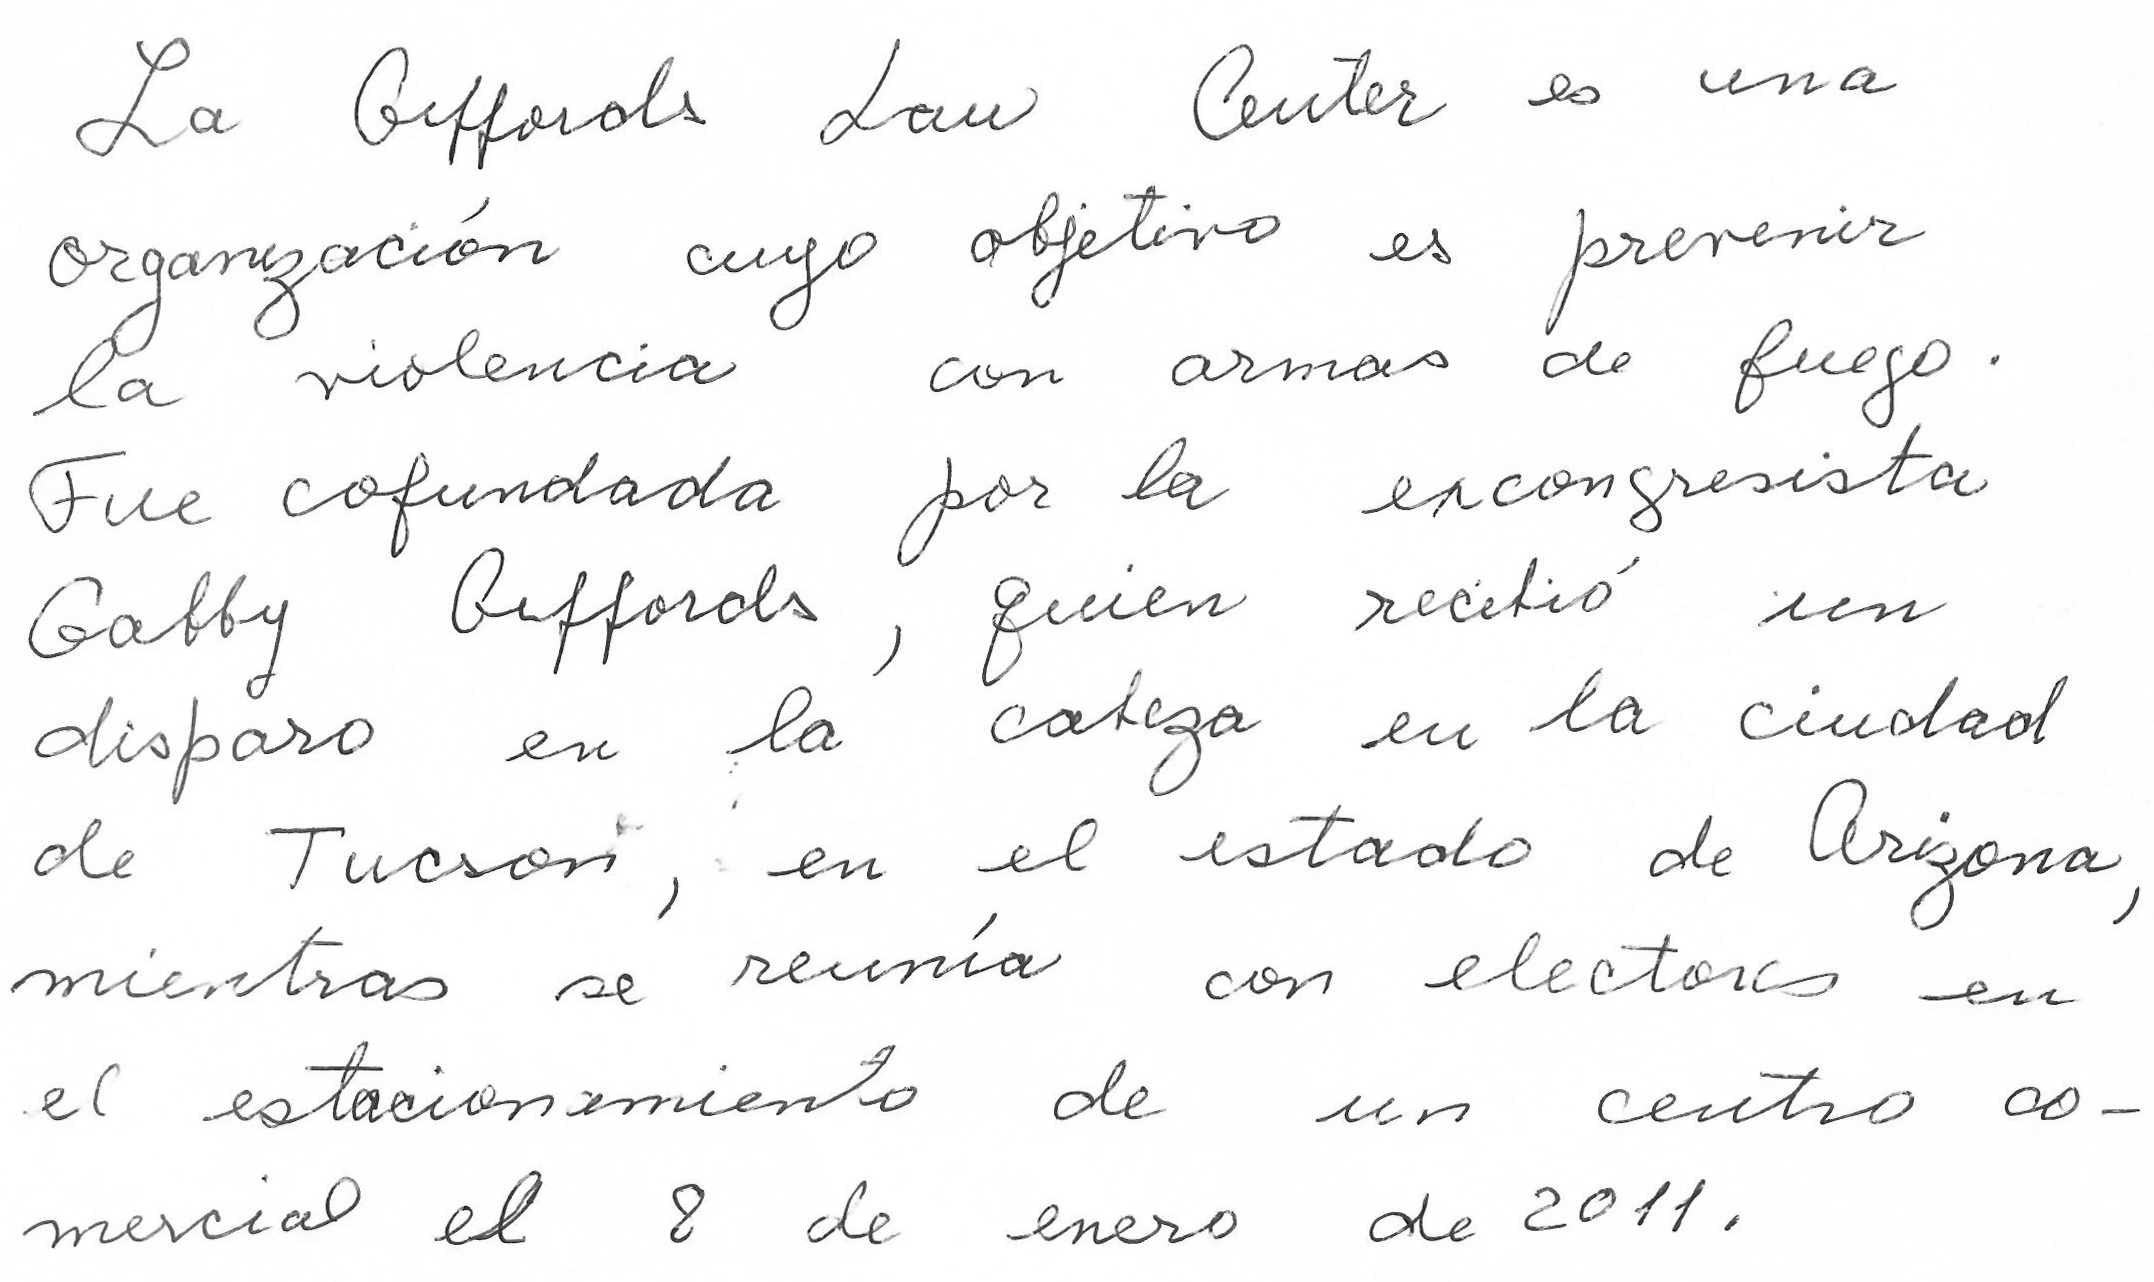 La Giffords Law Center es una
organización cuyo objetivo es prevenir
la violencia con armas de fuego.
Fue cofundada por la excongresista
Gabby Giffords, quien recibió un
disparo en la cabeza en la ciudad
de Tucson, en el estado de Arizona,
mientras se reunía con electores en
el estacionamiento de un centro co-
mercial el 8 de enero de 2011.